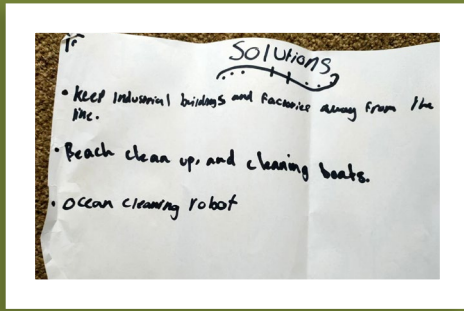 Solutions
• Keep Industrial buildings and Factories away from the
line.
• Beach clean up, and cleaning boats.
• Ocean cleaning robot